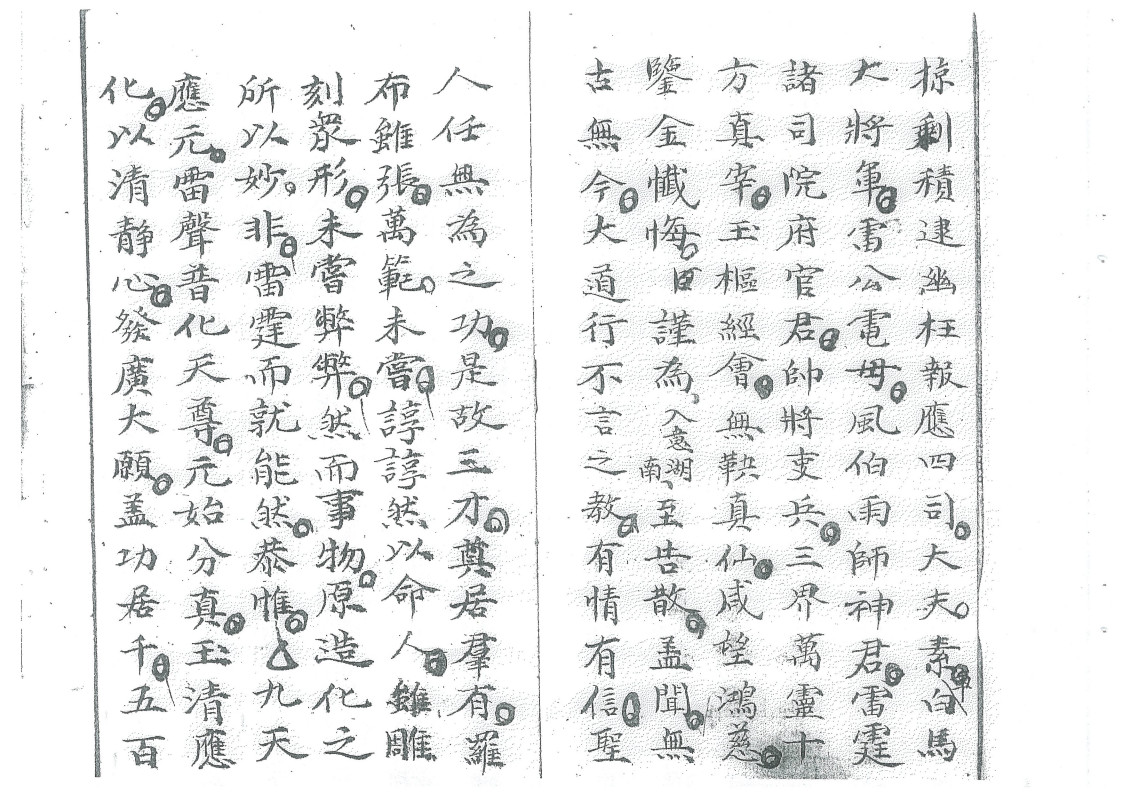 掠剩積逮幽枉報應四司大夫素白馬
大將軍雷公電母風伯雨師神君雷霆
諸司院府官君帥將吏兵三界萬靈十
方真宰玉樞經會無鞅真仙咸望鴻慈
鑒金懺悔臣謹為入意湖南至告散蓋聞無
古無今大道行不言之教有情有信聖
人任無為之功是故三才奠居羣有羅
布雖張萬範未嘗諄諄然以命人雖雕
刻眾形未嘗弊弊然而事物原造化之
所以妙非雷霆而就能然恭惟九天
應元雷聲普化天尊元始分真玉清應
化以清静心發廣大願盖功居千五百